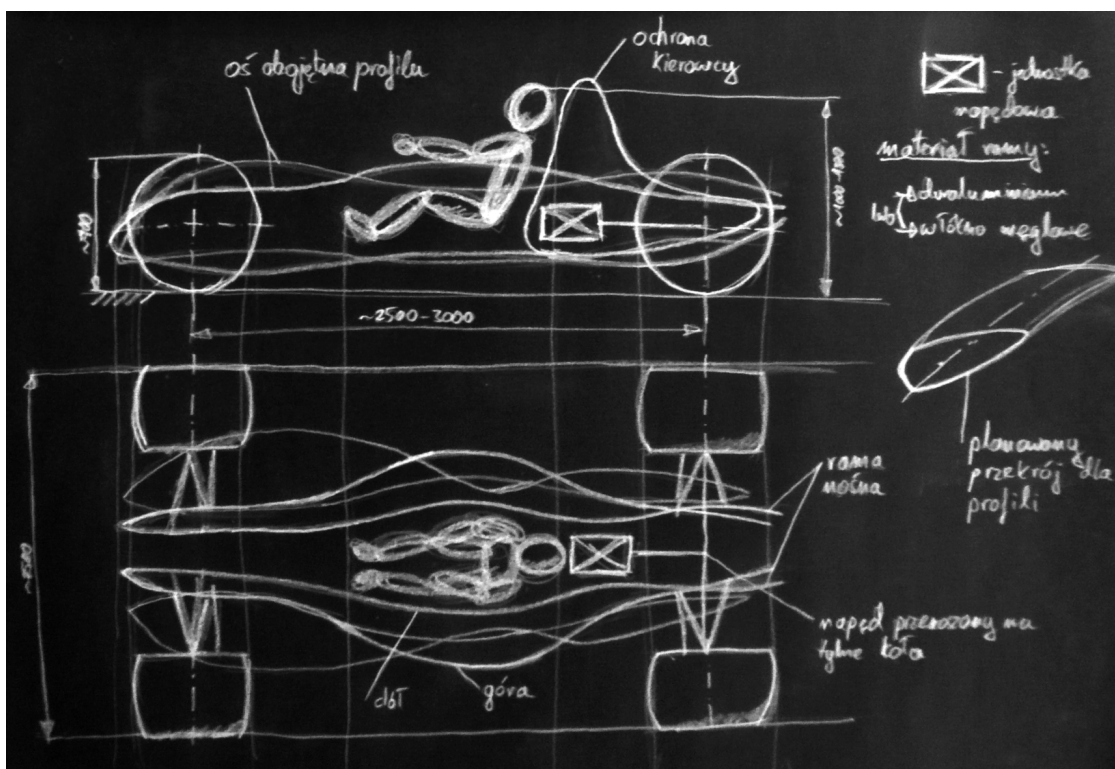 oś obojętna profilu
ochrona
kierowcy
- jednostka
napędowa
materiał ramy:
duraluminium
lub
włókno węglowe
~700
~1000-1100
~2500-3000
planowany
przekrój dla
profili
rama
nośna
napęd przenoszony na
tylne koła
dół
góra